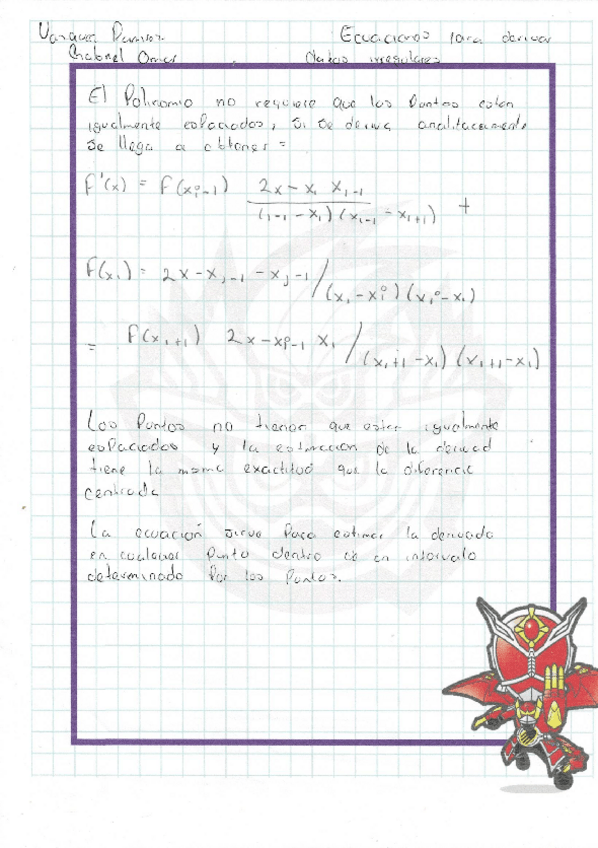 Vazquez Ramirez Ecuaciones para derivar
Gabriel Omar datos irregulares
El Polinomio no requiere que los Puntos esten
igualmente esPaciados, si se deriva analitacamente
se llega a obtener =
F'(x) = F(xi-1) 2x - xi xi-1 / (i-1 - xi) (xi-1 - xi+1) +
F(xi) = 2x - xj-1 - xj-1 / (xi - xi) (xi - xi)
= F(xi+1) 2x - xi-1 xi / (xi+1 - xi) (xi+1 - xi)
Los Puntos no tienen que estar igualmente
esPaciados y la estimacion de la derivad
tiene la misma exactitud que la diferencia
centrada
La ecuación sirve Para estimar la derivada
en cualquier Punto dentro de un intervalo
determinado Por los Puntos.